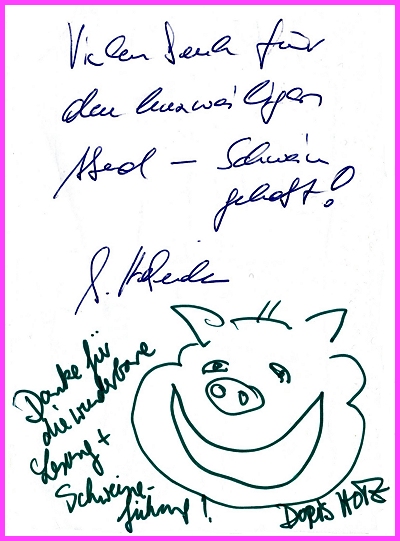 Vielen Dank für
den kurzweiligen
Abend – Schwein
gehabt!
Danke für
die wunderbare
Lesung +
Schweine-
führung!
Doris HOTZ